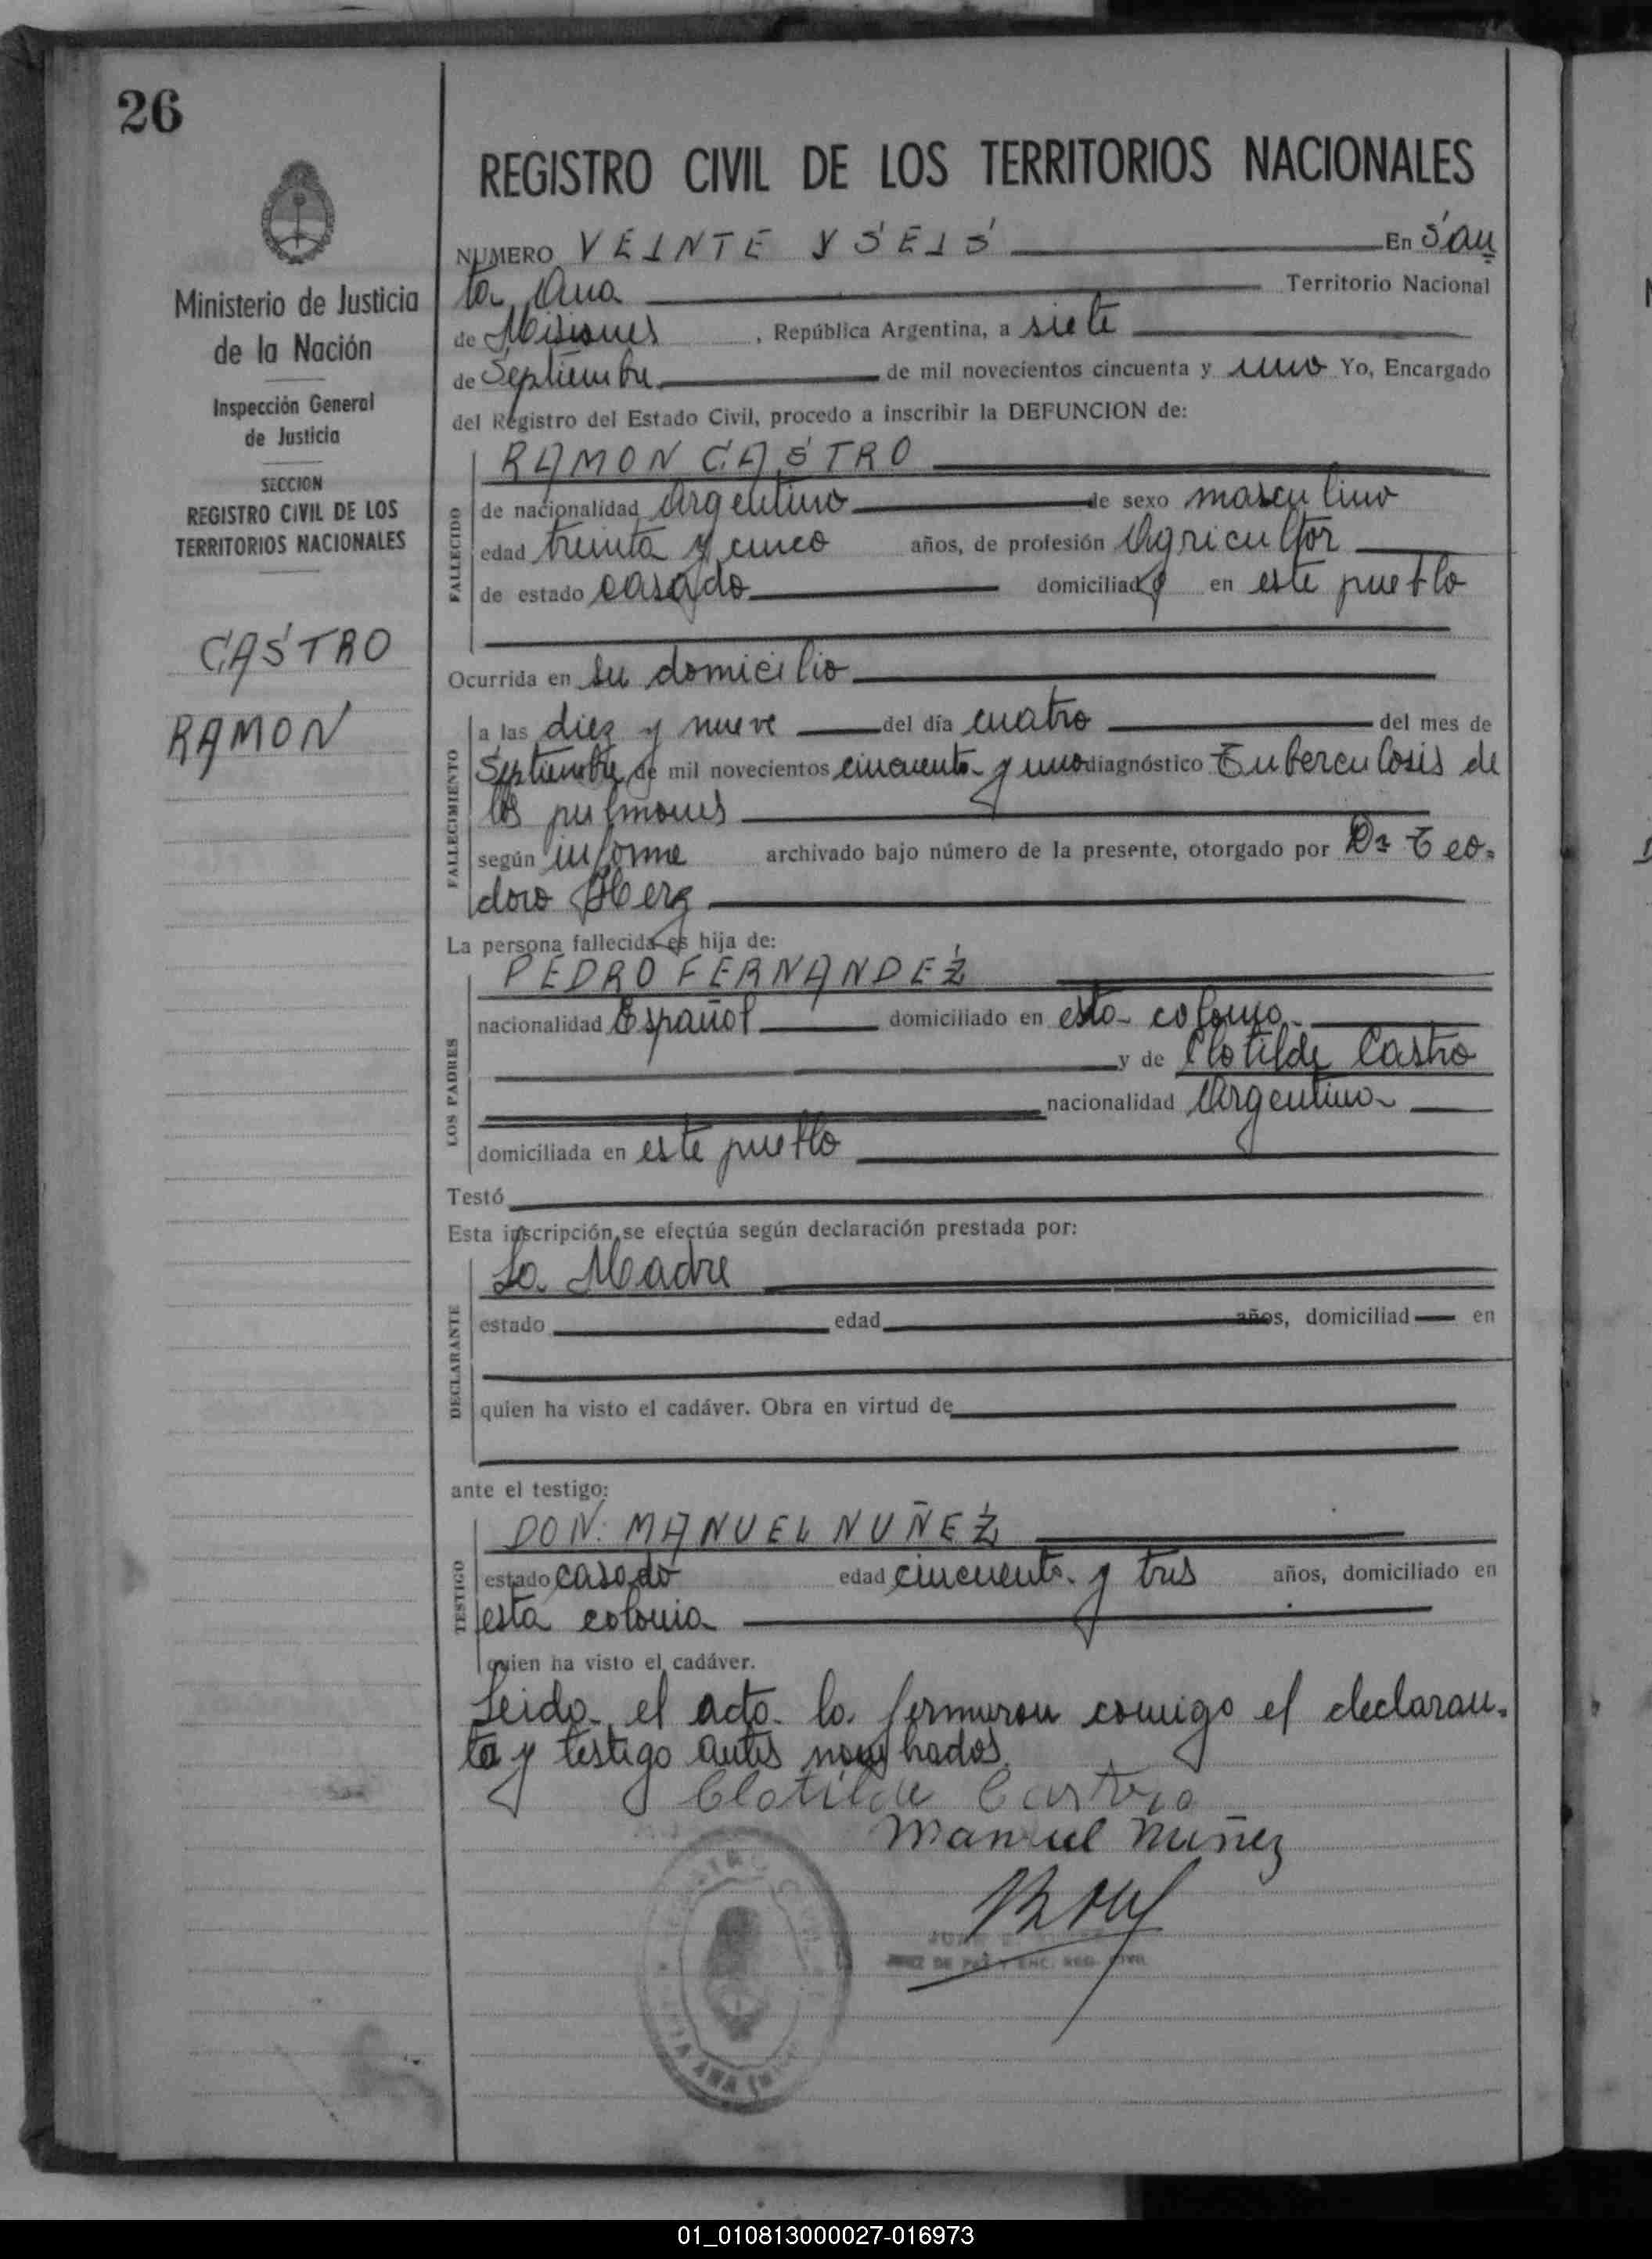 26
Ministerio de Justicia
de la Nación
Inspección General
de Justicia
SECCION
REGISTRO CIVIL DE LOS
TERRITORIOS NACIONALES
CASTRO
RAMON
REGISTRO CIVIL DE LOS TERRITORIOS NACIONALES
NUMERO VEINTE Y SEIS En San
ta Ana Territorio Nacional
de Misiones, República Argentina, a siete
de Septiembre de mil novecientos cincuenta y uno Yo, Encargado
del Registro del Estado Civil, procedo a inscribir la DEFUNCION de:
FALLECIDO
RAMON CASTRO
de nacionalidad Argentino de sexo masculino
edad treinta y cinco años, de profesión Agricultor
de estado casado domiciliado en este pueblo
Ocurrida en su domicilio
FALLECIMIENTO
a las diez y nueve del día cuatro del mes de
Septiembre de mil novecientos cincuenta y uno diagnóstico Tuberculosis de
los pulmones
según informe archivado bajo número de la presente, otorgado por Dr Teo-
doro Herz
La persona fallecida es hija de:
LOS PADRES
PEDRO FERNANDEZ
nacionalidad Español domiciliado en esta colonia
y de Clotilde Castro
nacionalidad Argentina
domiciliada en este pueblo
Testó
Esta inscripción se efectúa según declaración prestada por:
DECLARANTE
La Madre
estado edad años, domiciliad en
quien ha visto el cadáver. Obra en virtud de
ante el testigo:
TESTIGO
DON. MANUEL NUÑEZ
estado casado edad cincuenta y tres años, domiciliado en
esta colonia
quien ha visto el cadáver.
Leida el acta la firmaron comigo el declaran-
ta y testigo antes nombrados.
Clotilde Castro
Manuel Nuñez
JUAN
JUEZ DE PAZ Y ENC. REG. CIVIL
01_010813000027-016973